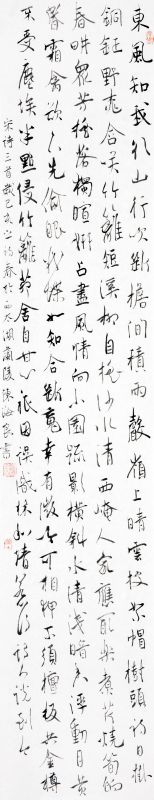 東風知我欲山行吹斷檐間積雨聲嶺上晴雲披絮帽樹頭初日掛
銅鉦野桃含笑竹籬短溪柳自搖沙水清西崦人家應最樂煮芹燒筍餉
春畊眾芳搖落獨暄妍占盡風情向小園疏影橫斜水清淺暗香浮動月黄
昏霜禽欲下先偷眼粉蝶如知合斷魂幸有微吟可相狎不須檀板共金樽
不受塵埃半點侵竹籬茅舍自甘心只因誤識林和靖惹得詩人說到今
宋詩三首歲己亥之初春於西太湖蘭陵陳海良書